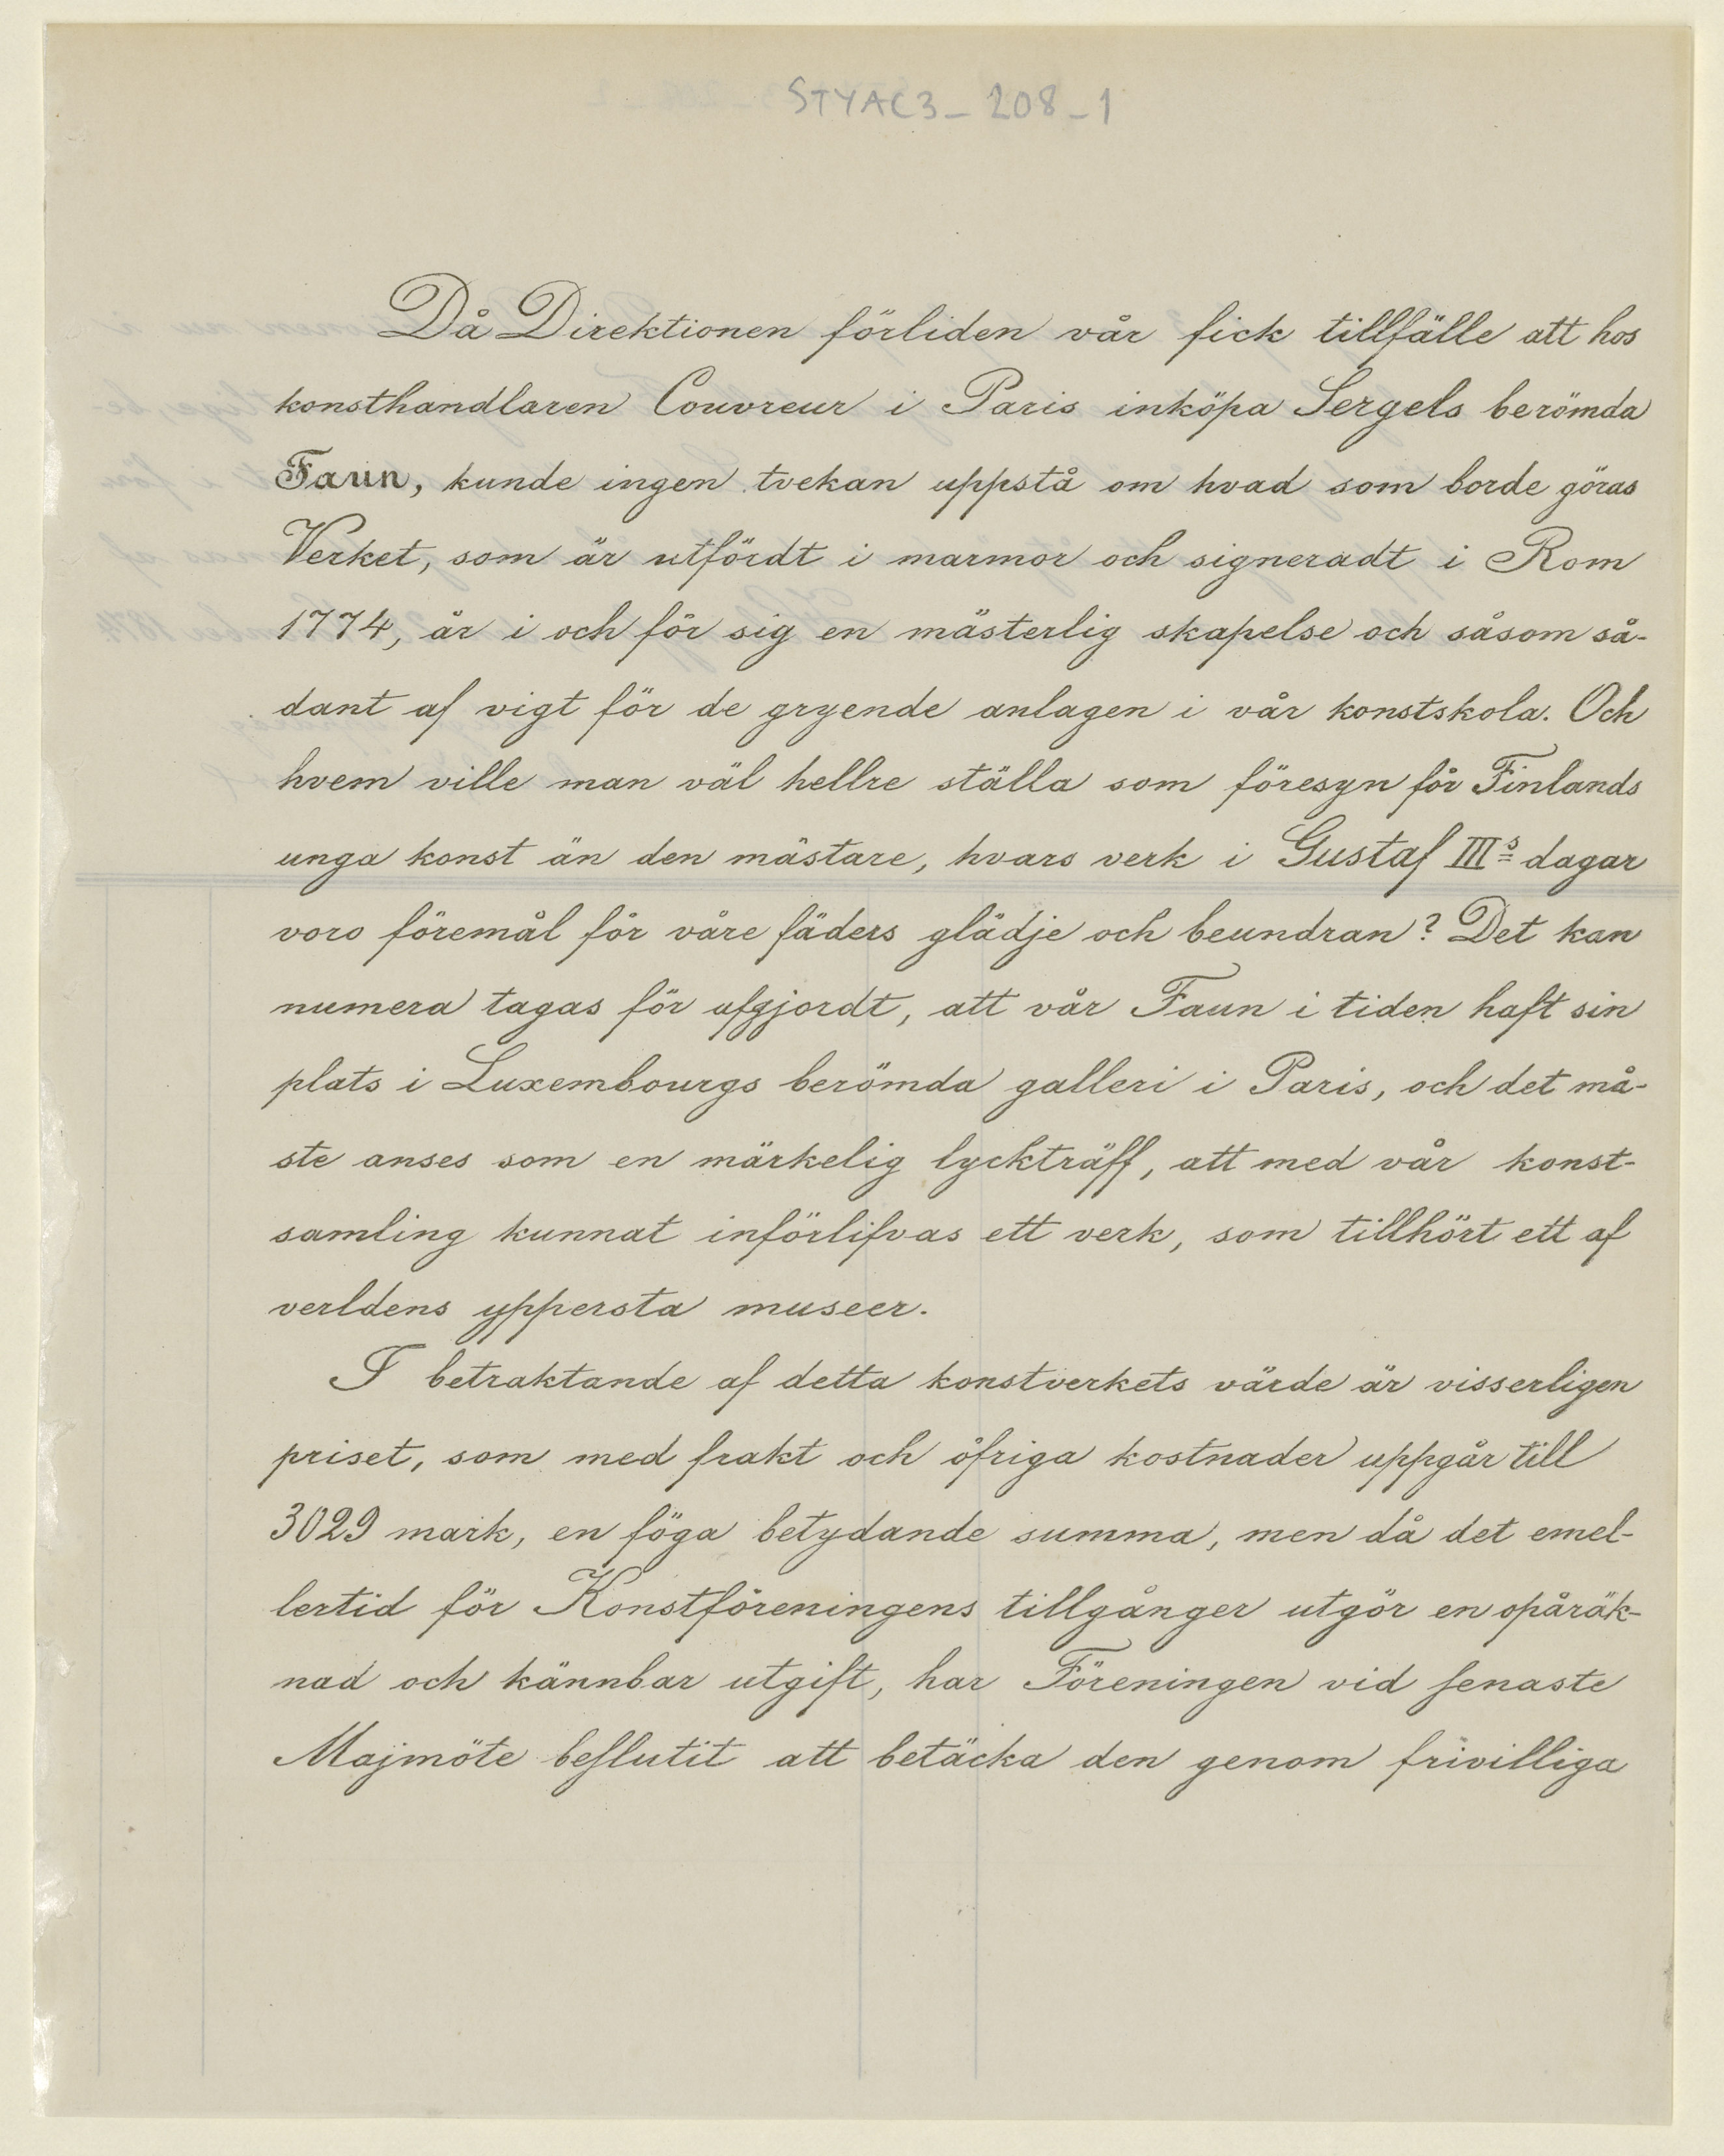 STYAC3_208_1
Då Direktionen förliden vår fick tillfälle att hos
konsthandlaren Couvreur i Paris inköpa Sergels berömda
Faun, kunde ingen tvekan uppstå om hvad som borde göras
Verket, som är utfördt i marmor och signeradt i Rom
1774, är i och för sig en mästerlig skapelse och såsom så-
dant af vigt för de gryende anlagen i vår konstskola. Och
hvem ville man väl hellre ställa som föresyn för Finlands
unga konst än den mästare, hvars verk i Gustaf IIIs dagar
voro föremål för våre fäders glädje och beundran? Det kan
numera tagas för afgjordt, att vår Faun i tiden haft sin
plats i Luxembourgs berömda galleri i Paris, och det må-
ste anses som en märkelig lyckträff, att med vår konst-
samling kunnat införlifvas ett verk, som tillhört ett af
verldens yppersta museer.
I betraktande af detta konstverkets värde är visserligen
priset, som med frakt och öfriga kostnader uppgår till
3029 mark, en föga betydande summa, men då det emel-
lertid för Konstföreningens tillgånger utgör en opåräk-
nad och kännbar utgift, har Föreningen vid senaste
Majmöte beslutit att betäcka den genom frivilliga